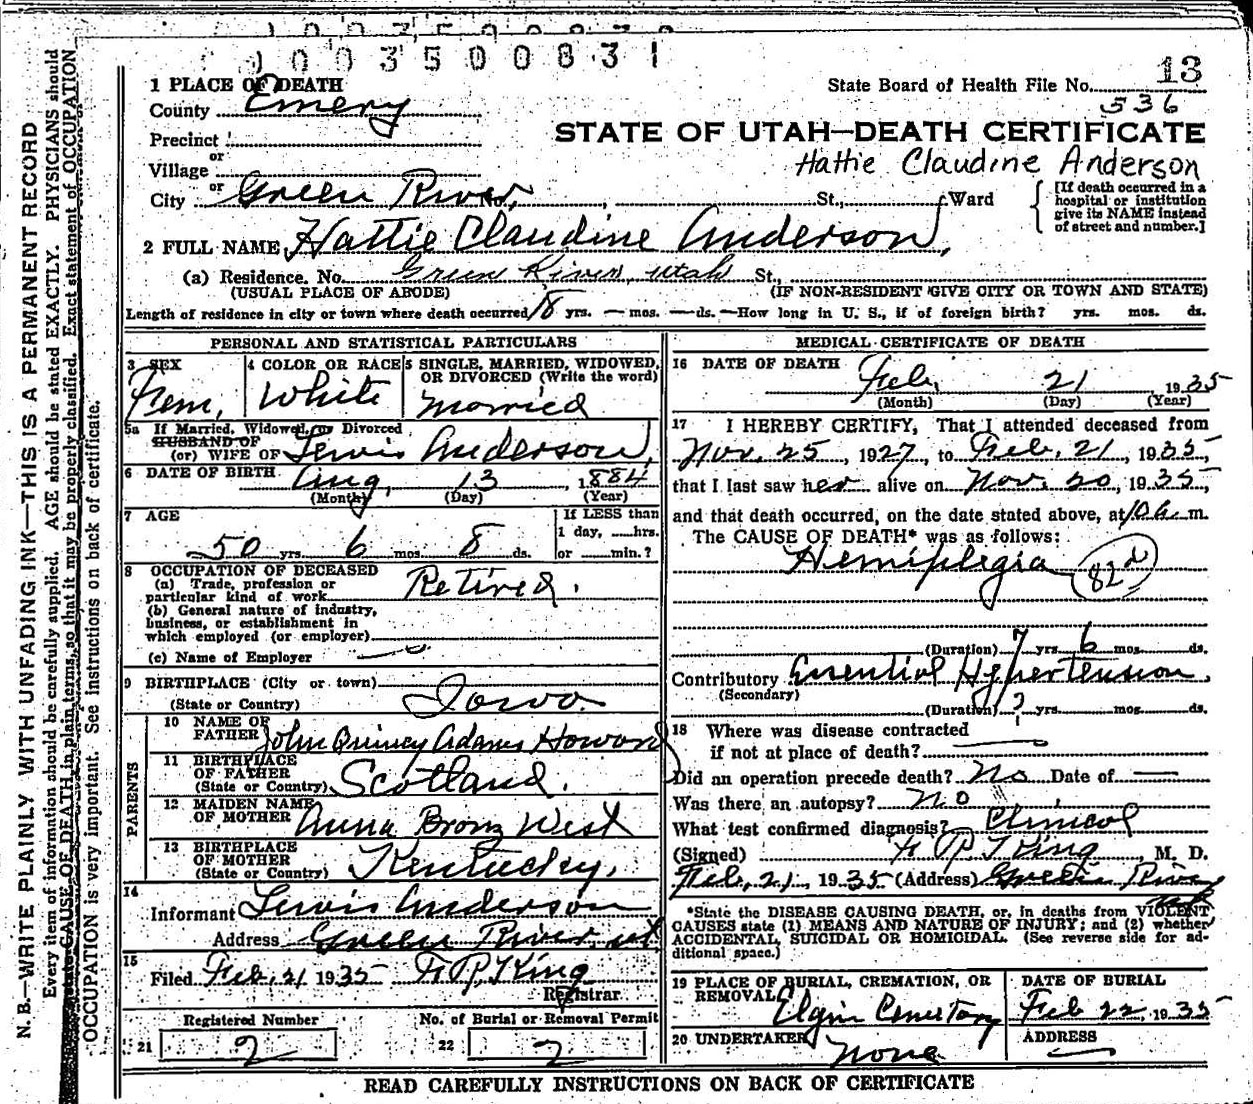 1003500831
13
1 PLACE OF DEATH
State Board of Health File No.
County Emery
536
Precinct
STATE OF UTAH—DEATH CERTIFICATE
or
Hattie Claudine Anderson
Village
or
City Green River No. , St., Ward
[If death occurred in a hospital or institution give its NAME instead of street and number.]
2 FULL NAME Hattie Claudine Anderson,
(a) Residence. No. Green River, Utah St.,
(USUAL PLACE OF ABODE) (IF NON-RESIDENT GIVE CITY OR TOWN AND STATE)
Length of residence in city or town where death occurred 18 yrs. — mos. — ds. — How long in U. S., if of foreign birth? yrs. mos. ds.
PERSONAL AND STATISTICAL PARTICULARS
3 SEX 4 COLOR OR RACE 5 SINGLE, MARRIED, WIDOWED,
OR DIVORCED (Write the word)
Fem. White Married
5a If Married, Widowed, or Divorced
HUSBAND OF
(or) WIFE OF Lewis Anderson,
6 DATE OF BIRTH Aug, 13, 1884
(Month) (Day) (Year)
7 AGE If LESS than
1 day, hrs.
50 yrs. 6 mos. 8 ds. or min.?
8 OCCUPATION OF DECEASED
(a) Trade, profession or
particular kind of work Retired.
(b) General nature of industry,
business, or establishment in
which employed (or employer)
(c) Name of Employer
9 BIRTHPLACE (City or town)
(State or Country) Iowa
PARENTS
10 NAME OF
FATHER John Quincy Adams Howard
11 BIRTHPLACE
OF FATHER
(State or Country) Scotland.
12 MAIDEN NAME
OF MOTHER Anna West
13 BIRTHPLACE
OF MOTHER
(State or Country) Kentucky.
14
Informant Lewis Anderson
Address Green River ut
15
Filed Feb, 21 1935 King
Registrar
Registered Number No. of Burial or Removal Permit
21 2 22 2
MEDICAL CERTIFICATE OF DEATH
16 DATE OF DEATH Feb, 21 1935
(Month) (Day) (Year)
17 I HEREBY CERTIFY, That I attended deceased from
Nov. 25, 1927, to Feb. 21, 1935,
that I last saw her alive on Nov. 20, 1935,
and that death occurred, on the date stated above, at 10 a. m.
The CAUSE OF DEATH* was as follows:
Hemiplegia
(Duration) 7 yrs. 6 mos. ds.
Contributory Essential Hypertension.
(Secondary)
(Duration) ? yrs. mos. ds.
18 Where was disease contracted
if not at place of death?
Did an operation precede death? No Date of —
Was there an autopsy? No
What test confirmed diagnosis? Clinical
(Signed) King, M. D.
Feb, 21, 1935 (Address) Green River
*State the DISEASE CAUSING DEATH, or, in deaths from VIOLENT
CAUSES state (1) MEANS AND NATURE OF INJURY; and (2) whether
ACCIDENTAL, SUICIDAL OR HOMICIDAL. (See reverse side for ad-
ditional space.)
19 PLACE OF BURIAL, CREMATION, OR DATE OF BURIAL
REMOVAL Elgin Cemetary Feb 22, 1935
20 UNDERTAKER ADDRESS
None
READ CAREFULLY INSTRUCTIONS ON BACK OF CERTIFICATE
N. B.—WRITE PLAINLY WITH UNFADING INK—THIS IS A PERMANENT RECORD
Every item of information should be carefully supplied. AGE should be stated EXACTLY. PHYSICIANS should
state CAUSE OF DEATH in plain terms, so that it may be properly classified. Exact statement of OCCUPATION
OCCUPATION is very important. See instructions on back of certificate.